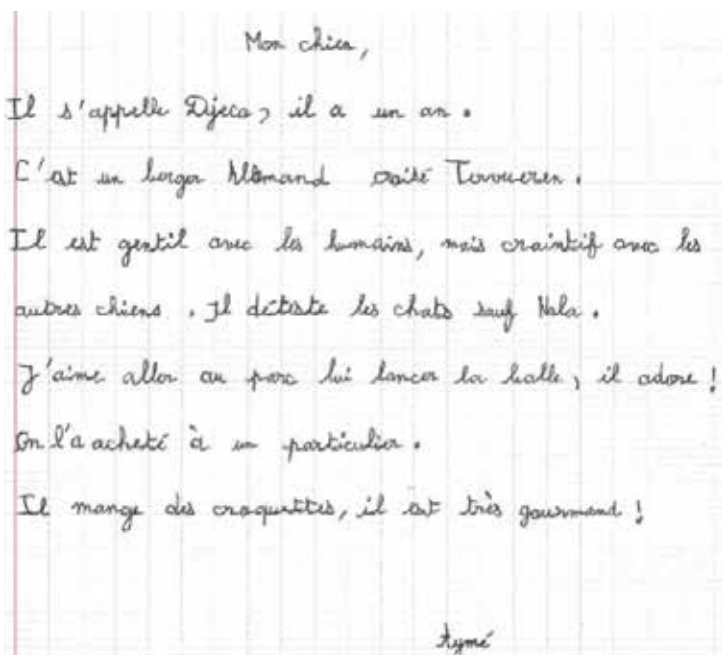 Mon chien,
Il s'appelle Djeco, il a un an.
C'est un berger Allemand croisé Tervueren.
Il est gentil avec les humains, mais craintif avec les
autres chiens. Il déteste les chats sauf Nala.
J'aime aller au parc lui lancer la balle, il adore !
On l'a acheté à un particulier.
Il mange des croquettes, il est très gourmand !
Aymé